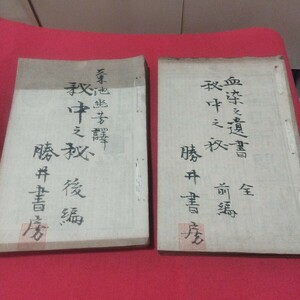 血染之遺書
秘中之秘
全
前編
勝井書房
菊池幽芳譯
秘中之秘
後編
勝井書房